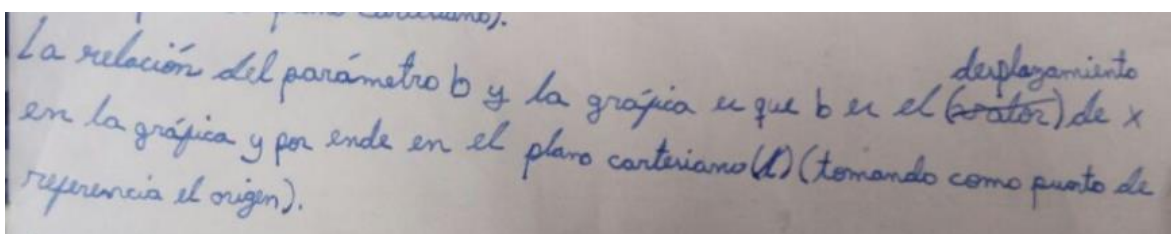 plano carteriano).
La relación del parámetro b y la gráfica es que b es el (valor) desplazamiento de x
en la gráfica y por ende en el plano carteriano (tomando como punto de
referencia el origen).